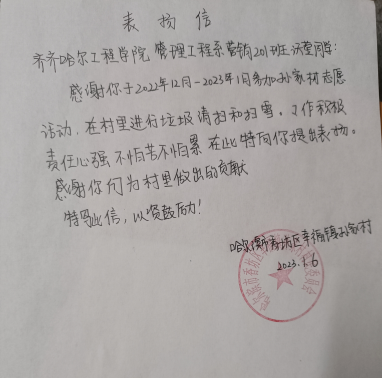 表扬信
齐齐哈尔工程学院 管理工程系营销201班王沛莹同学:
感谢你于2022年12月-2023年1月参加孙家村志愿
活动,在村里进行垃圾清扫和扫雪。工作积极
责任心强 不怕苦不怕累 在此特向你提出表扬。
感谢你们为村里做出的贡献
特写此信,以资鼓励!
哈尔滨市香坊区幸福镇孙家村
2023.1.6